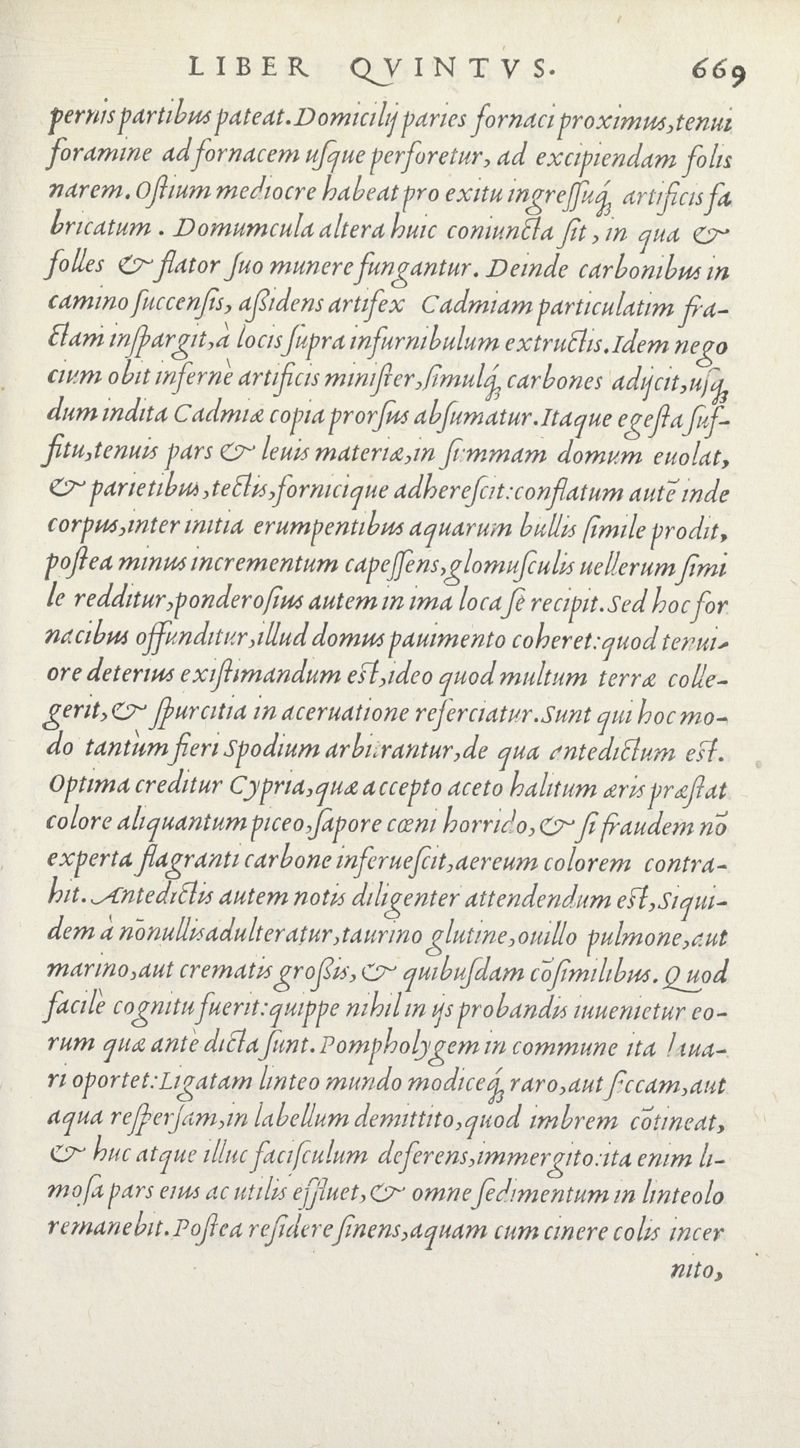 LIBER QVINTVS. 669
pernis partibus pateat. Domicilij paries fornaci proximus, tenui
foramine ad fornacem uſque perforetur, ad excipiendam folis
narem. Oſtium mediocre habeat pro exitu ingreſſuq́; artificis fa
bricatum. Domumcula altera huic coniuncta ſit, in qua &
folles & flator ſuo munere fungantur. Deinde carbonibus in
camino ſuccenſis, aßidens artifex Cadmiam particulatim fra-
ctam inſpargit, à locis ſupra infurnibulum extructis. Idem nego
cium obit infernè artificis miniſter, ſimulq́; carbones adijcit, uſq;
dum indita Cadmiæ copia prorſus abſumatur. Itaque egeſta ſuf-
fitu, tenuis pars & leuis materiæ, in ſummam domum euolat,
& parietibus, tectis, fornicique adhereſcit: conflatum autē inde
corpus, inter initia erumpentibus aquarum bullis ſimile prodit,
poſtea minus incrementum capeſſens, glomuſculis uellerum ſimi
le redditur, ponderoſius autem in ima loca ſe recipit. Sed hoc for
nacibus offunditur, illud domus pauimento coheret: quod tenui-
ore deterius exiſtimandum eſt, ideo quod multum terræ colle-
gerit, & ſpurcitia in aceruatione referciatur. Sunt qui hoc mo-
do tantùm fieri Spodium arbitrantur, de qua antedictum eſt.
Optima creditur Cypria, quæ accepto aceto halitum æris præſtat
colore aliquantum piceo, ſapore cœni horrido, & ſi fraudem nō
experta flagranti carbone inferueſcit, aereum colorem contra-
hit. Antedictis autem notis diligenter attendendum eſt, Siqui-
dem à nōnullis adulteratur, taurino glutine, ouillo pulmone, aut
marino, aut crematis großis, & quibuſdam cōſimilibus. Quod
facilè cognitu fuerit: quippe nihil in ijs probandis inuenietur eo-
rum quæ antè dicta ſunt. Pompholygem in commune ita laua-
ri oportet: Ligatam linteo mundo modiceq́; raro, aut ſiccam, aut
aqua reſperſam, in labellum demittito, quod imbrem cōtineat,
& huc atque illuc faciſculum deferens, immergito: ita enim li-
moſa pars eius ac utilis effluet, & omne ſedimentum in linteolo
remanebit. Poſtea reſidere ſinens, aquam cum cinere colis incer
nito,